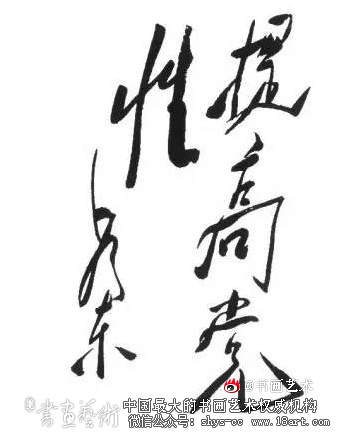 提高党
性
毛泽东
@书画艺术
書画藝術
中国最大的书画艺术权威机构
微信公众号: shys-cc www.18art.com